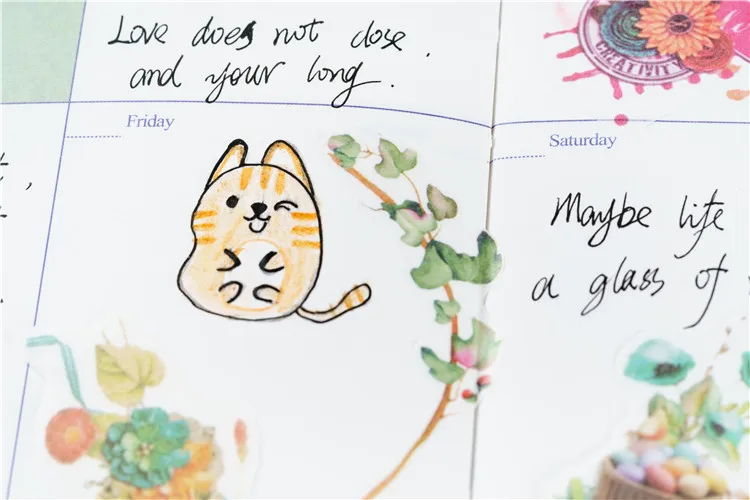 Love does not close
and your long.
CREATIVITY
Friday
Saturday
Maybe life
a glass of